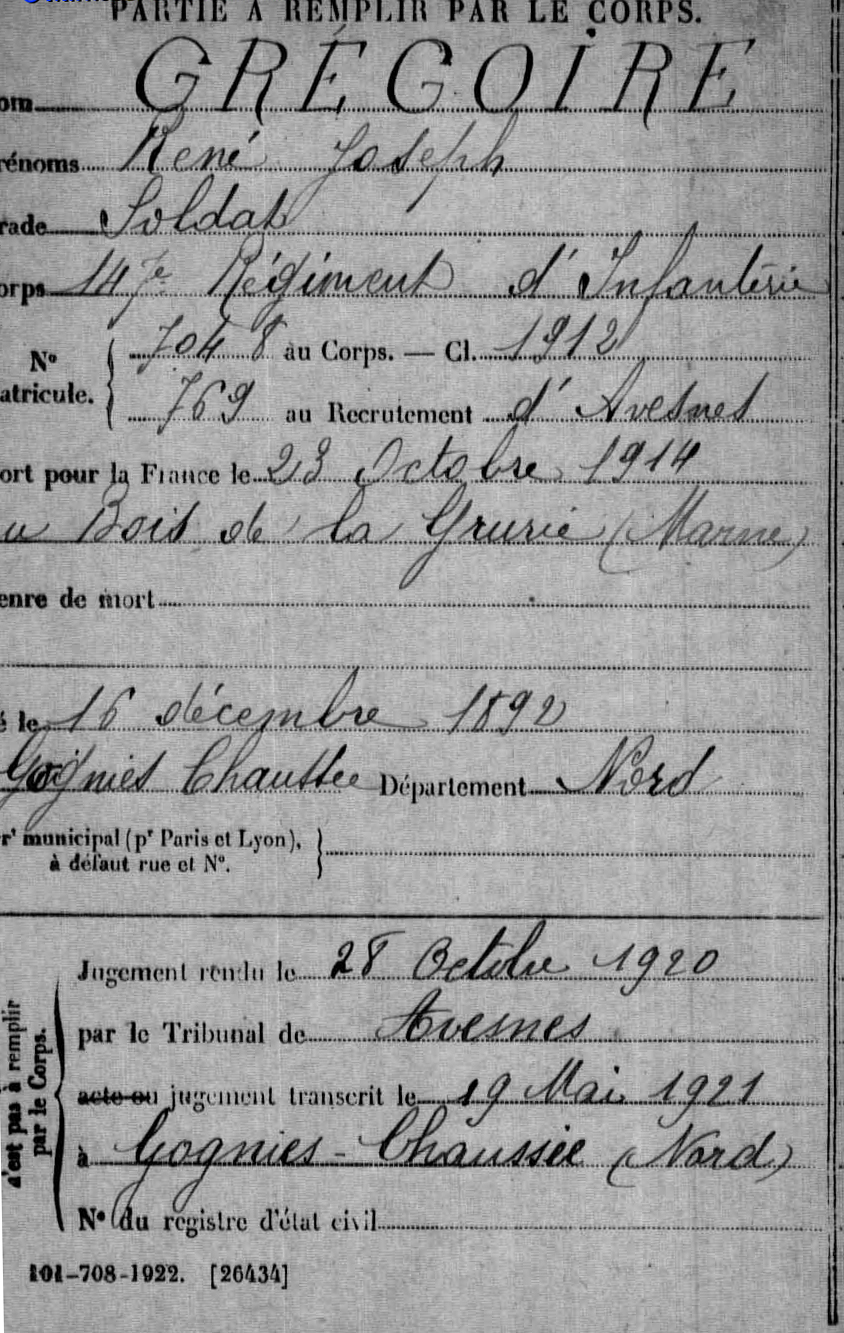 PARTIE À REMPLIR PAR LE CORPS.
om GRÉGOIRE
rénoms René Joseph
rade Soldat
orps 147e Régiment d'Infanterie
No atricule. 7048 au Corps. — Cl. 1912
769 au Recrutement d'Avesnes
ort pour la France le 23 Octobre 1914
u Bois de la Grurie (Marne)
enre de mort
é le 16 décembre 1892
Gognies Chaussée Département Nord
rt municipal (pr Paris et Lyon),
à défaut rue et No.
Jugement rendu le 28 Octobre 1920
par le Tribunal de Avesnes
acte ou jugement transcrit le 19 Mai 1921
à Gognies-Chaussée (Nord)
No du registre d'état civil
n'est pas à remplir
par le Corps.
101-708-1922. [26434]